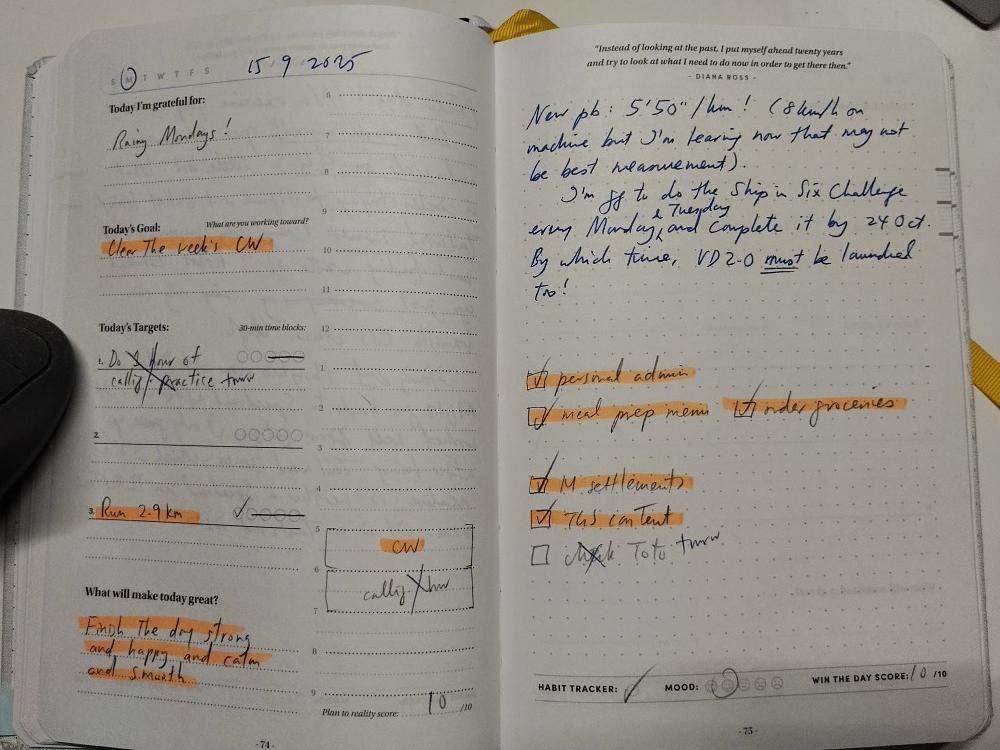 S M T W T F S
15 9 2025
Today I'm grateful for:
Rainy Mondays!
Today's Goal:
What are you working toward?
Clear The week's CW
Today's Targets:
30-min time blocks:
1. Do 1 hour of
callig. practice tmrw
2.
3. Run 2.9 km
What will make today great?
Finish The day strong
and happy and calm
and smooth
6
7
8
9
10
11
12
1
2
3
4
5
CW
6
callig. tmrw
7
8
9
Plan to reality score: 10 /10
- 74 -
"Instead of looking at the past, I put myself ahead twenty years
and try to look at what I need to do now in order to get there then."
- DIANA ROSS -
New pb: 5'50"/km! (8km/h on
machine but I'm learning now that may not
be best measurement).
I'm gg to do the Ship in Six Challenge
every Monday & Tuesday and complete it by 24 Oct.
By which time, VD 2-0 must be launched
too!
personal admin
meal prep menu
order groceries
M settlements
THS content
check Toto tmrw
HABIT TRACKER:
MOOD:
WIN THE DAY SCORE: 10 /10
- 75 -